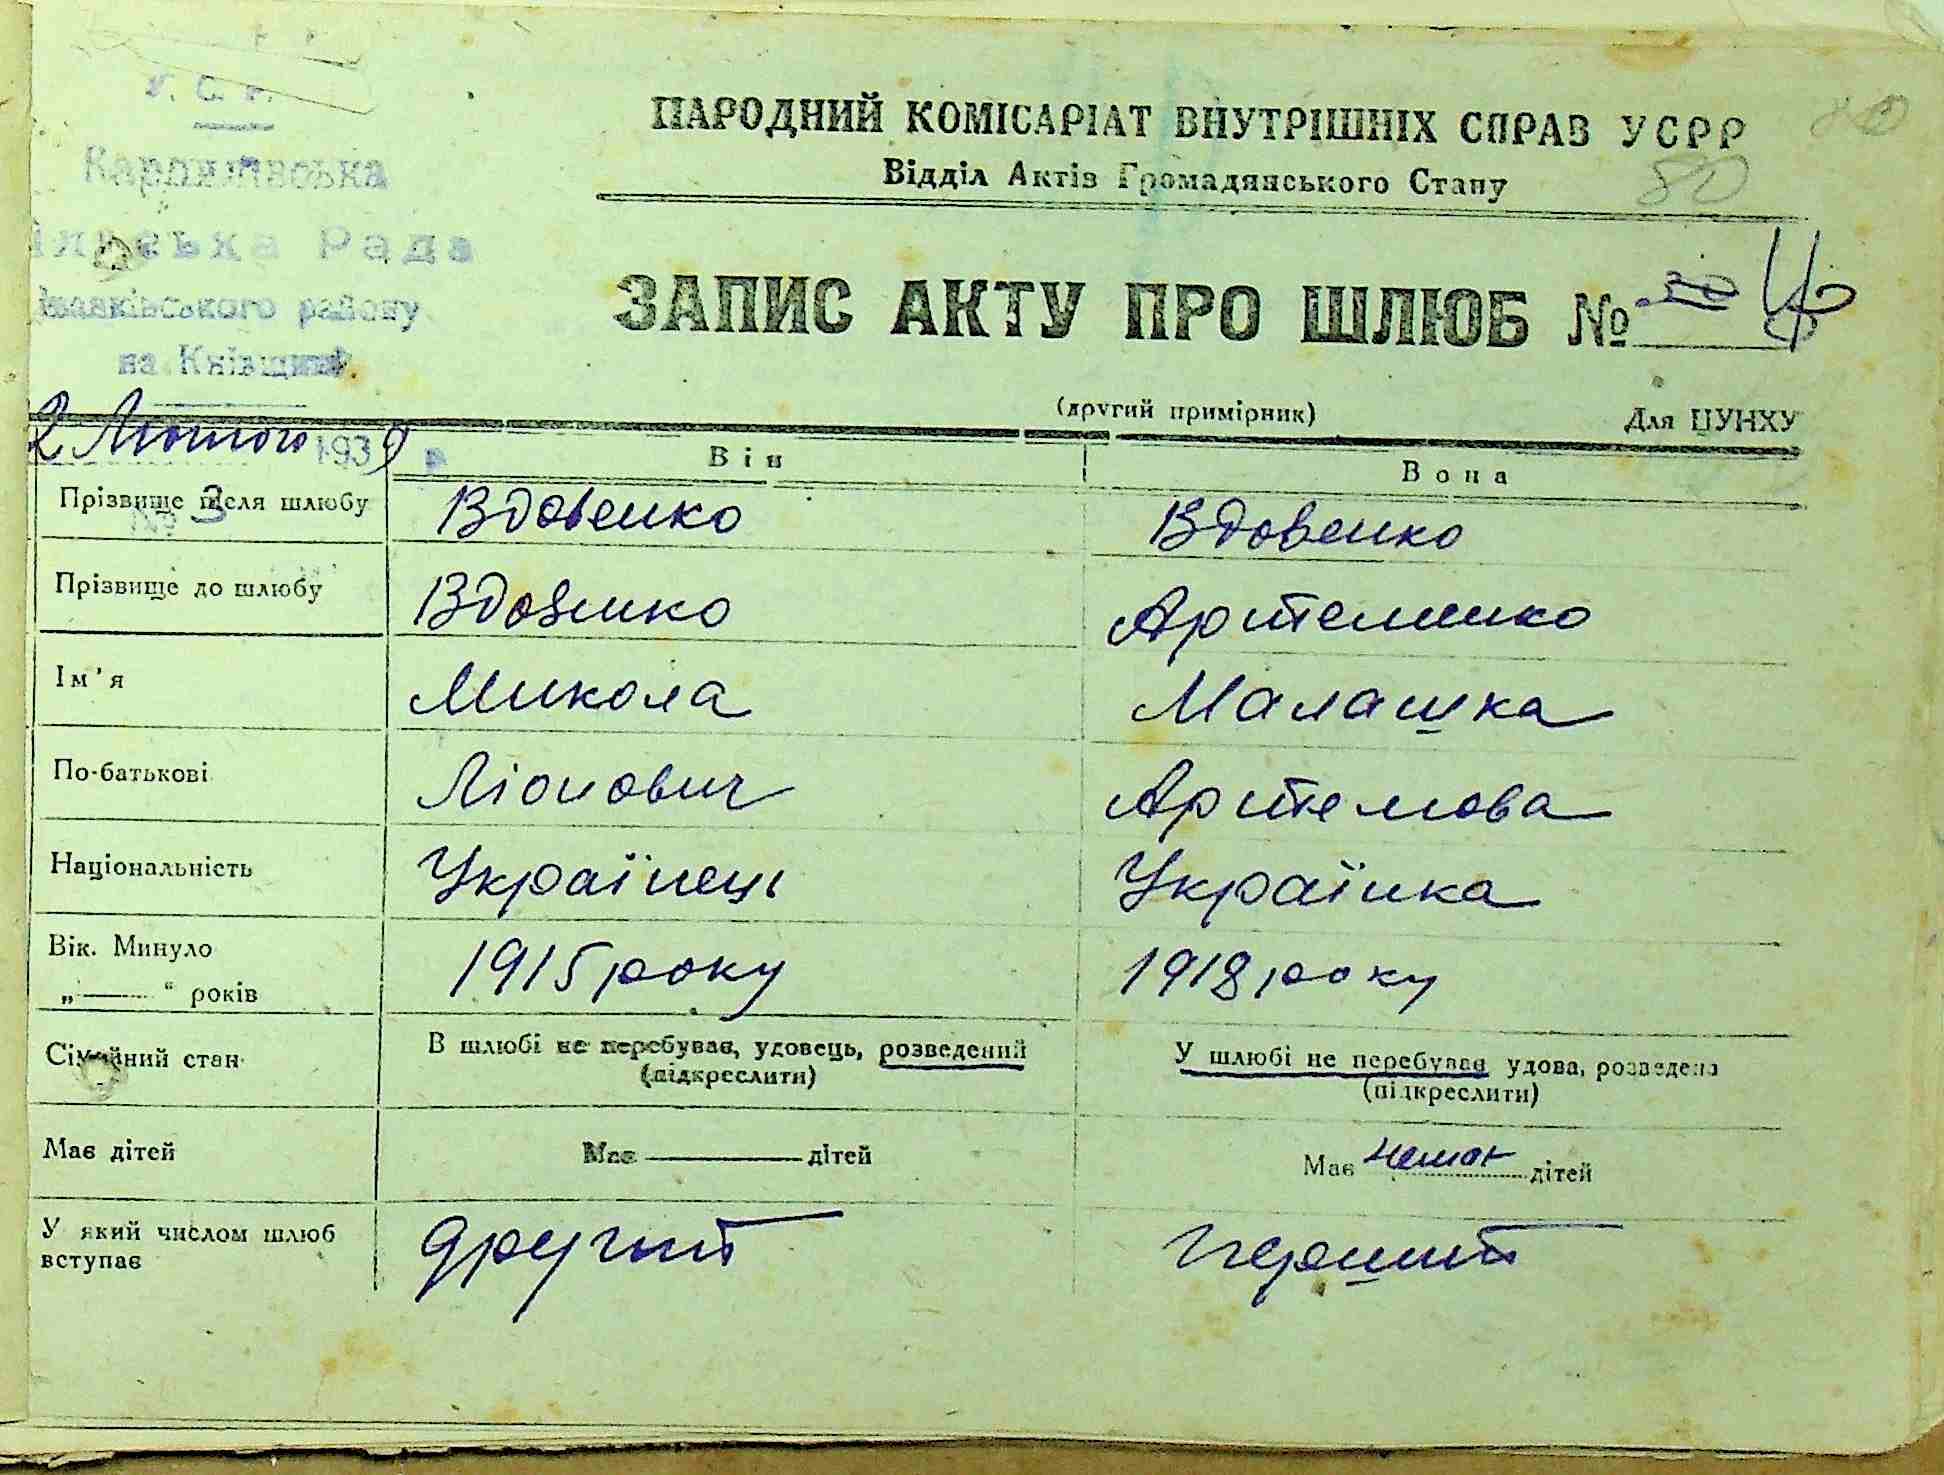 У. С. Р.
Рада
району
на Київщині
НАРОДНИЙ КОМІСАРІАТ ВНУТРІШНІХ СПРАВ УСРР
80
Відділ Актів Громадянського Стану
80
ЗАПИС АКТУ ПРО ШЛЮБ №
(другий примірник) Для ЦУНХУ
2 Лютого 1939 р
№ 3
Він Вона
Прізвище після шлюбу Вдовенко Вдовенко
Прізвище до шлюбу Вдовенко Артеменко
Ім'я Микола Малашка
По-батькові Ліонович Артемова
Національність Українець Українка
Вік. Минуло 1915 року 1918 року
„——“ років
Сімейний стан В шлюбі не перебував, удовець, розведений У шлюбі не перебував удова, розведена
(підкреслити) (підкреслити)
Має дітей Має ——— дітей Має немає дітей
У який числом шлюб другий перший
вступає